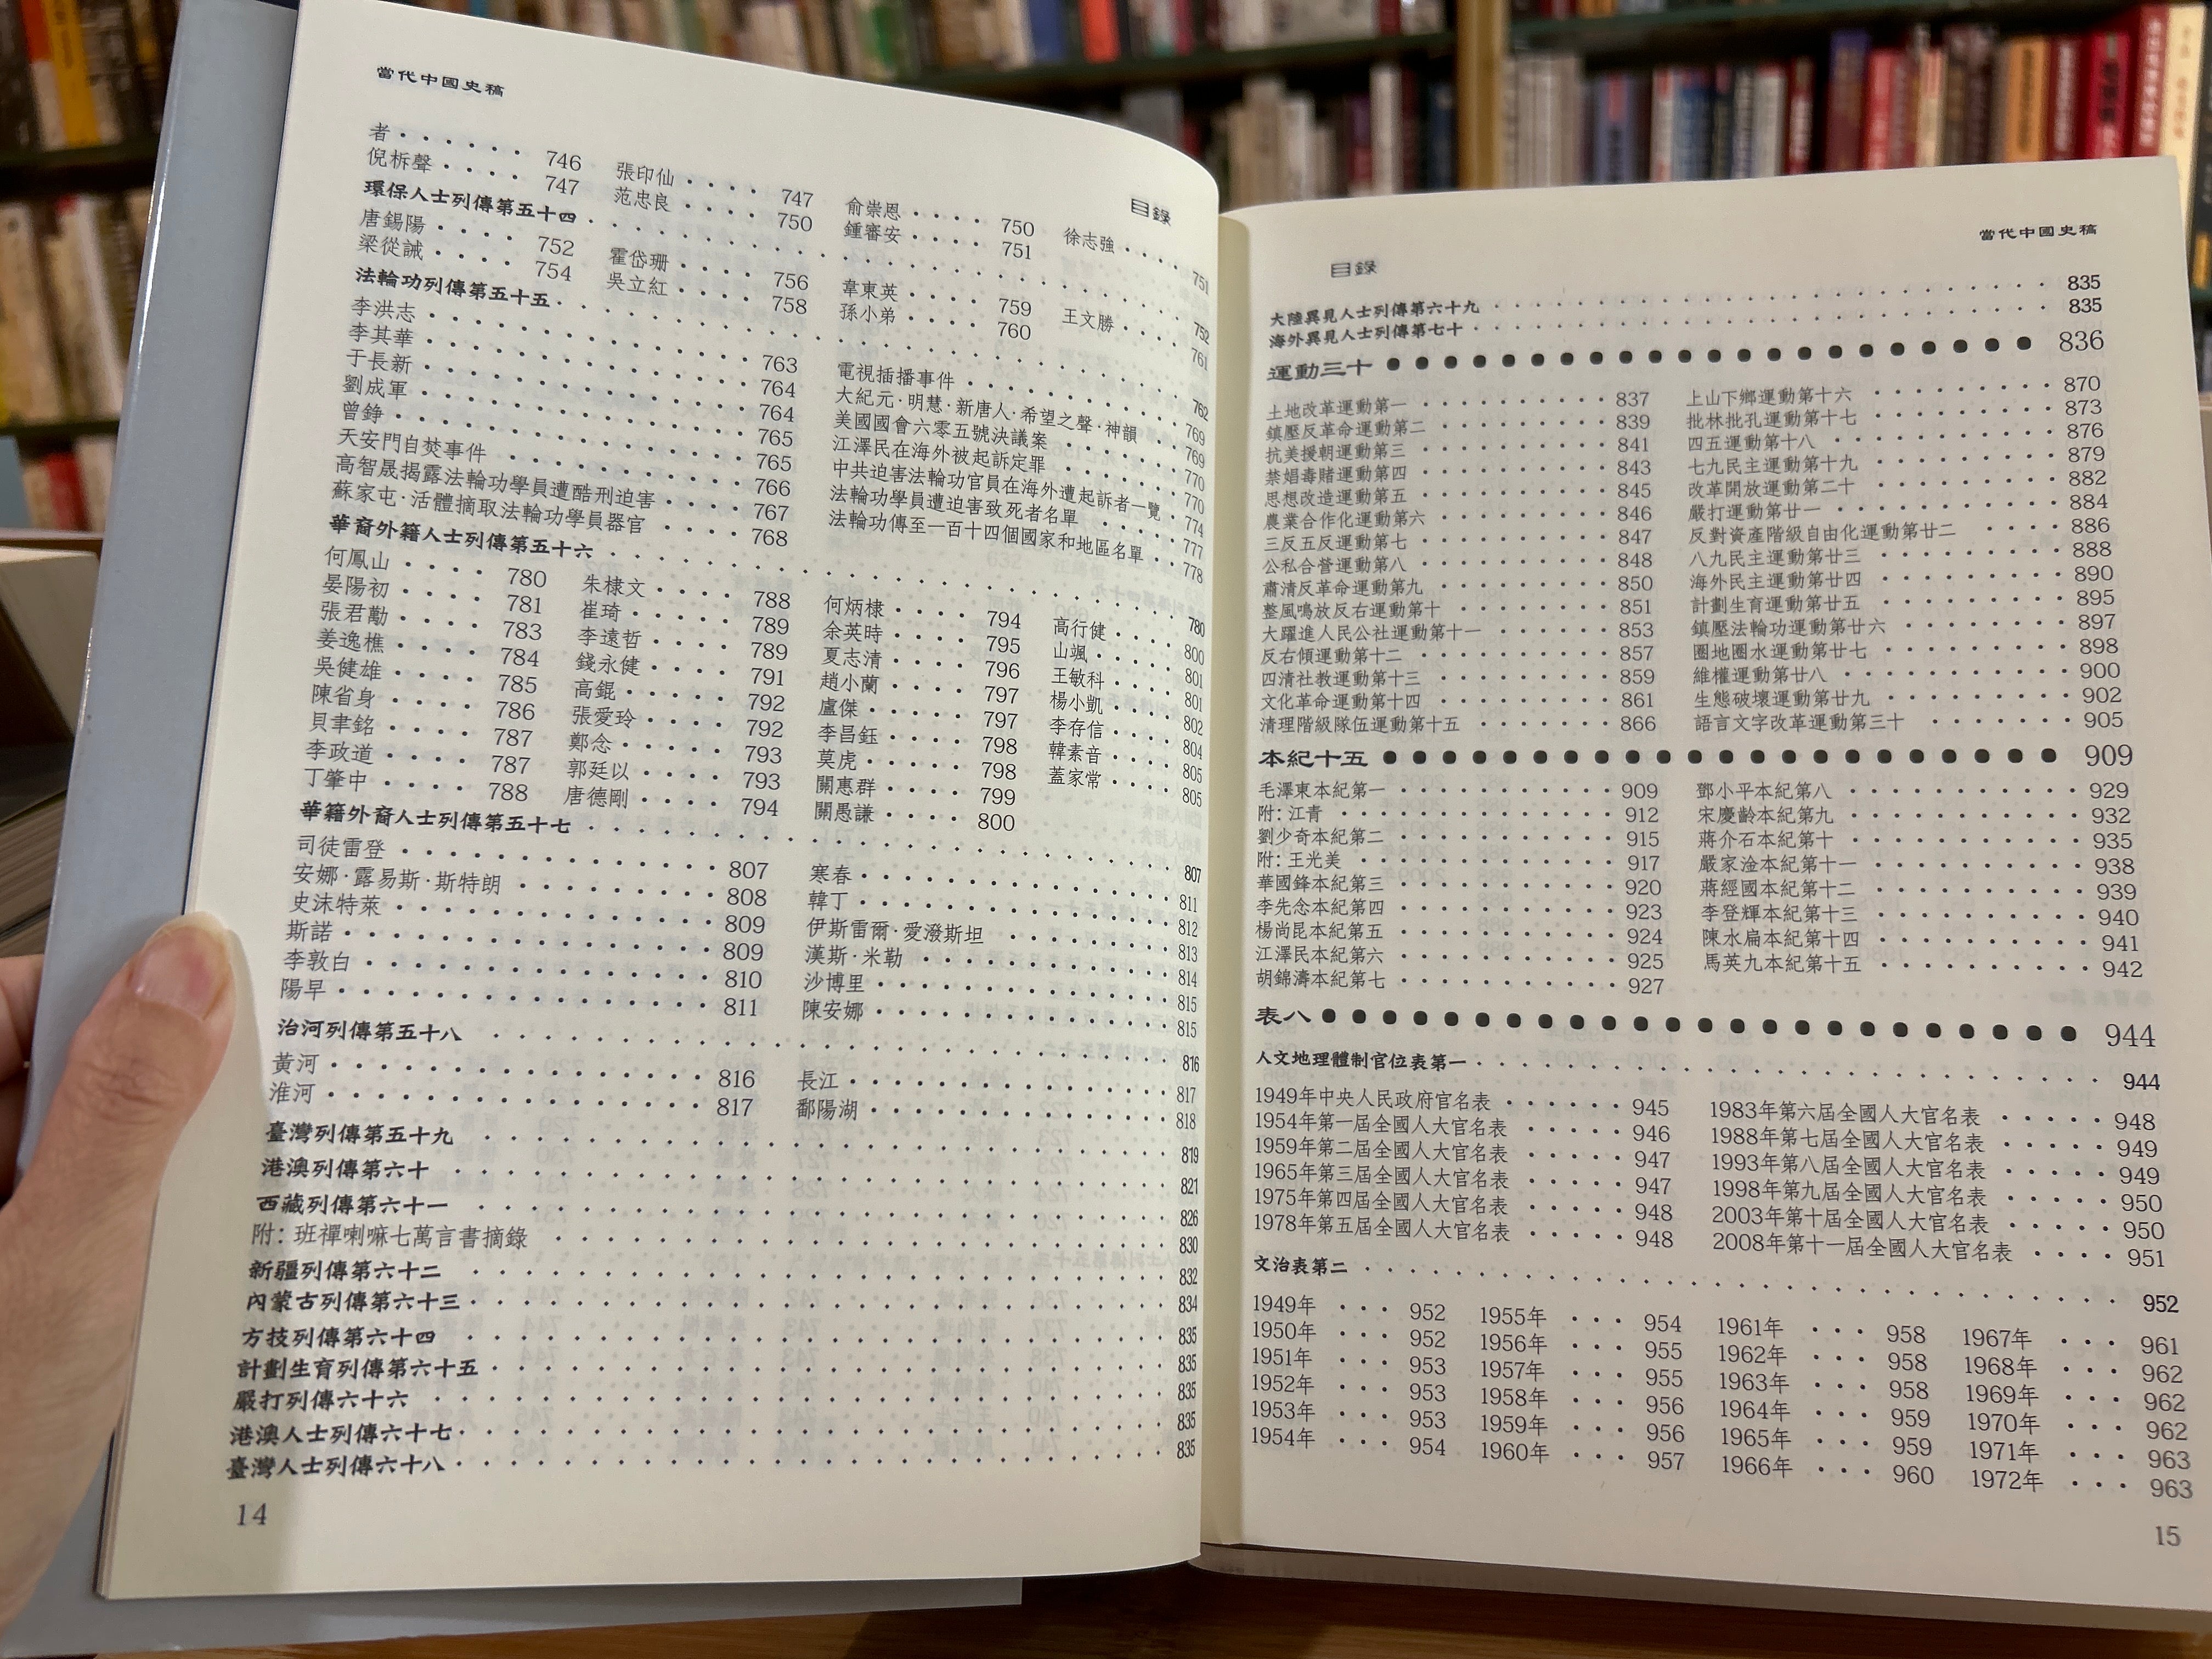 當代中國史稿
目錄
者 746
倪柝聲 747 張印仙 747 俞崇恩 750 徐志強 751
范忠良 750 鍾審安 751
環保人士列傳第五十四 752
唐錫陽 752 霍岱珊 756 韋東英 759 王文勝 761
梁從誡 754 吳立紅 758 孫小弟 760
法輪功列傳第五十五 762
李洪志 763 電視插播事件 769
李其華 764 大紀元·明慧·新唐人·希望之聲·神韻 769
于長新 764 美國國會六零五號決議案 770
劉成軍 765 江澤民在海外被起訴定罪 770
曾錚 765 中共迫害法輪功官員在海外遭起訴者一覽 774
天安門自焚事件 766 法輪功學員遭迫害致死者名單 777
高智晟揭露法輪功學員遭酷刑迫害 767 法輪功傳至一百十四個國家和地區名單 778
蘇家屯·活體摘取法輪功學員器官 768
華裔外籍人士列傳第五十六 780
何鳳山 780 朱棣文 788 何炳棣 794 高行健 800
晏陽初 781 崔琦 789 余英時 795 山颯 801
張君勱 783 李遠哲 789 夏志清 796 王敏科 801
姜逸樵 784 錢永健 791 趙小蘭 797 楊小凱 802
吳健雄 785 高錕 792 盧傑 797 李存信 804
陳省身 786 張愛玲 792 李昌鈺 798 韓素音 805
貝聿銘 787 鄭念 793 莫虎 798 蓋家常 805
李政道 787 郭廷以 793 關惠群 799
丁肇中 788 唐德剛 794 關愚謙 800
華籍外裔人士列傳第五十七 807
司徒雷登 807 寒春 811
安娜·露易斯·斯特朗 808 韓丁 812
史沫特萊 809 伊斯雷爾·愛潑斯坦 813
斯諾 809 漢斯·米勒 814
李敦白 810 沙博里 815
陽早 811 陳安娜 815
治河列傳第五十八 816
黃河 816 長江 817
淮河 817 鄱陽湖 818
臺灣列傳第五十九 819
港澳列傳第六十 821
西藏列傳第六十一 826
附：班禪喇嘛七萬言書摘錄 830
新疆列傳第六十二 832
內蒙古列傳第六十三 834
方技列傳第六十四 835
計劃生育列傳第六十五 835
嚴打列傳六十六 835
港澳人士列傳六十七 835
臺灣人士列傳六十八 835
14
目錄
當代中國史稿
大陸異見人士列傳第六十九 835
海外異見人士列傳第七十 835
運動三十 836
土地改革運動第一 837 上山下鄉運動第十六 870
鎮壓反革命運動第二 839 批林批孔運動第十七 873
抗美援朝運動第三 841 四五運動第十八 876
禁娼毒賭運動第四 843 七九民主運動第十九 879
思想改造運動第五 845 改革開放運動第二十 882
農業合作化運動第六 846 嚴打運動第廿一 884
三反五反運動第七 847 反對資產階級自由化運動第廿二 886
公私合營運動第八 848 八九民主運動第廿三 888
肅清反革命運動第九 850 海外民主運動第廿四 890
整風鳴放反右運動第十 851 計劃生育運動第廿五 895
大躍進人民公社運動第十一 853 鎮壓法輪功運動第廿六 897
反右傾運動第十二 857 圈地圈水運動第廿七 898
四清社教運動第十三 859 維權運動第廿八 900
文化革命運動第十四 861 生態破壞運動第廿九 902
清理階級隊伍運動第十五 866 語言文字改革運動第三十 905
本紀十五 909
毛澤東本紀第一 909 鄧小平本紀第八 929
附：江青 912 宋慶齡本紀第九 932
劉少奇本紀第二 915 蔣介石本紀第十 935
附：王光美 917 嚴家淦本紀第十一 938
華國鋒本紀第三 920 蔣經國本紀第十二 939
李先念本紀第四 923 李登輝本紀第十三 940
楊尚昆本紀第五 924 陳水扁本紀第十四 941
江澤民本紀第六 925 馬英九本紀第十五 942
胡錦濤本紀第七 927
表八 944
人文地理體制官位表第一 944
1949年中央人民政府官名表 945 1983年第六屆全國人大官名表 948
1954年第一屆全國人大官名表 946 1988年第七屆全國人大官名表 949
1959年第二屆全國人大官名表 947 1993年第八屆全國人大官名表 949
1965年第三屆全國人大官名表 947 1998年第九屆全國人大官名表 950
1975年第四屆全國人大官名表 948 2003年第十屆全國人大官名表 950
1978年第五屆全國人大官名表 948 2008年第十一屆全國人大官名表 951
文治表第二 952
1949年 952 1955年 954 1961年 958 1967年 961
1950年 952 1956年 955 1962年 958 1968年 962
1951年 953 1957年 955 1963年 958 1969年 962
1952年 953 1958年 956 1964年 959 1970年 962
1953年 953 1959年 956 1965年 959 1971年 963
1954年 954 1960年 957 1966年 960 1972年 963
15